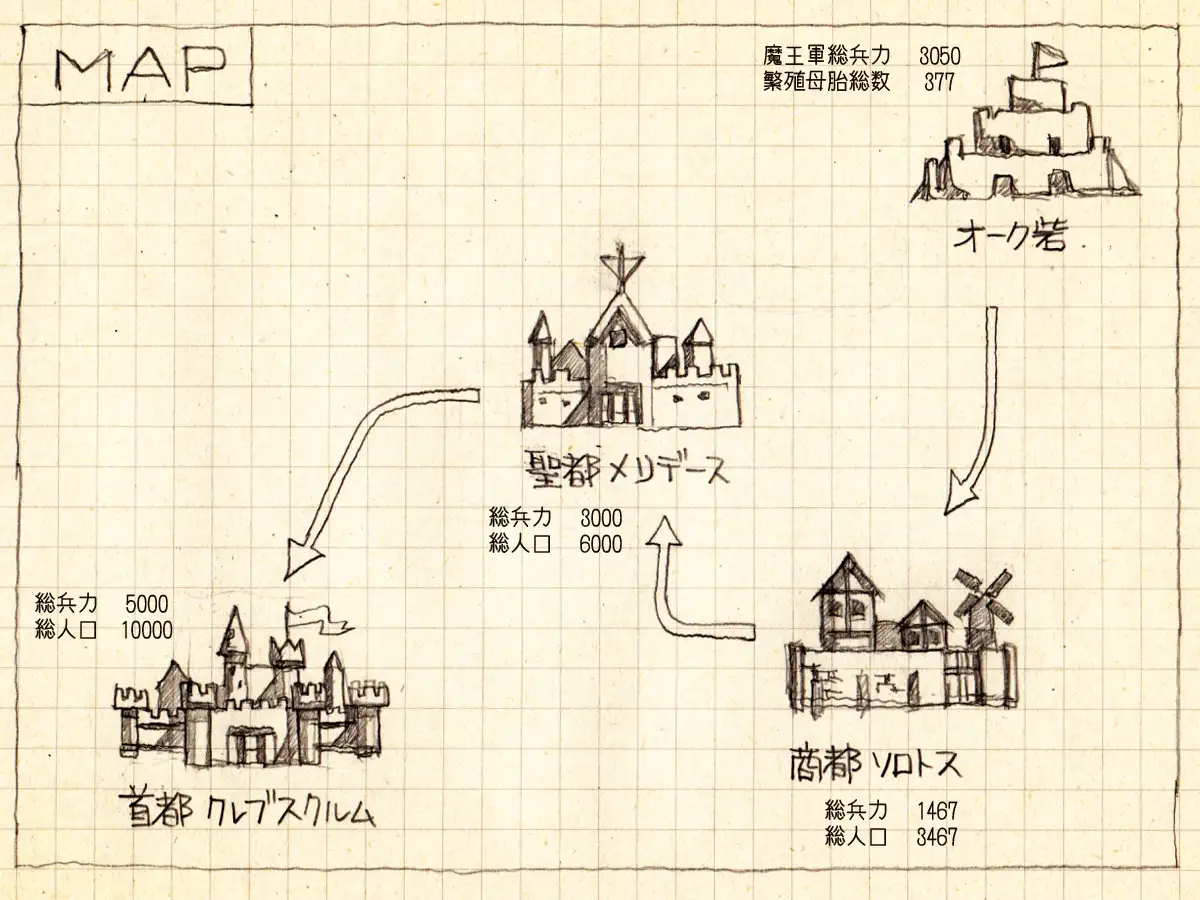 MAP
魔王軍総兵力 3050
繁殖母胎総数 377
オーク砦
聖都 メリデース
総兵力 3000
総人口 6000
総兵力 5000
総人口 10000
首都 クレブスクルム
商都 ソロトス
総兵力 1467
総人口 3467